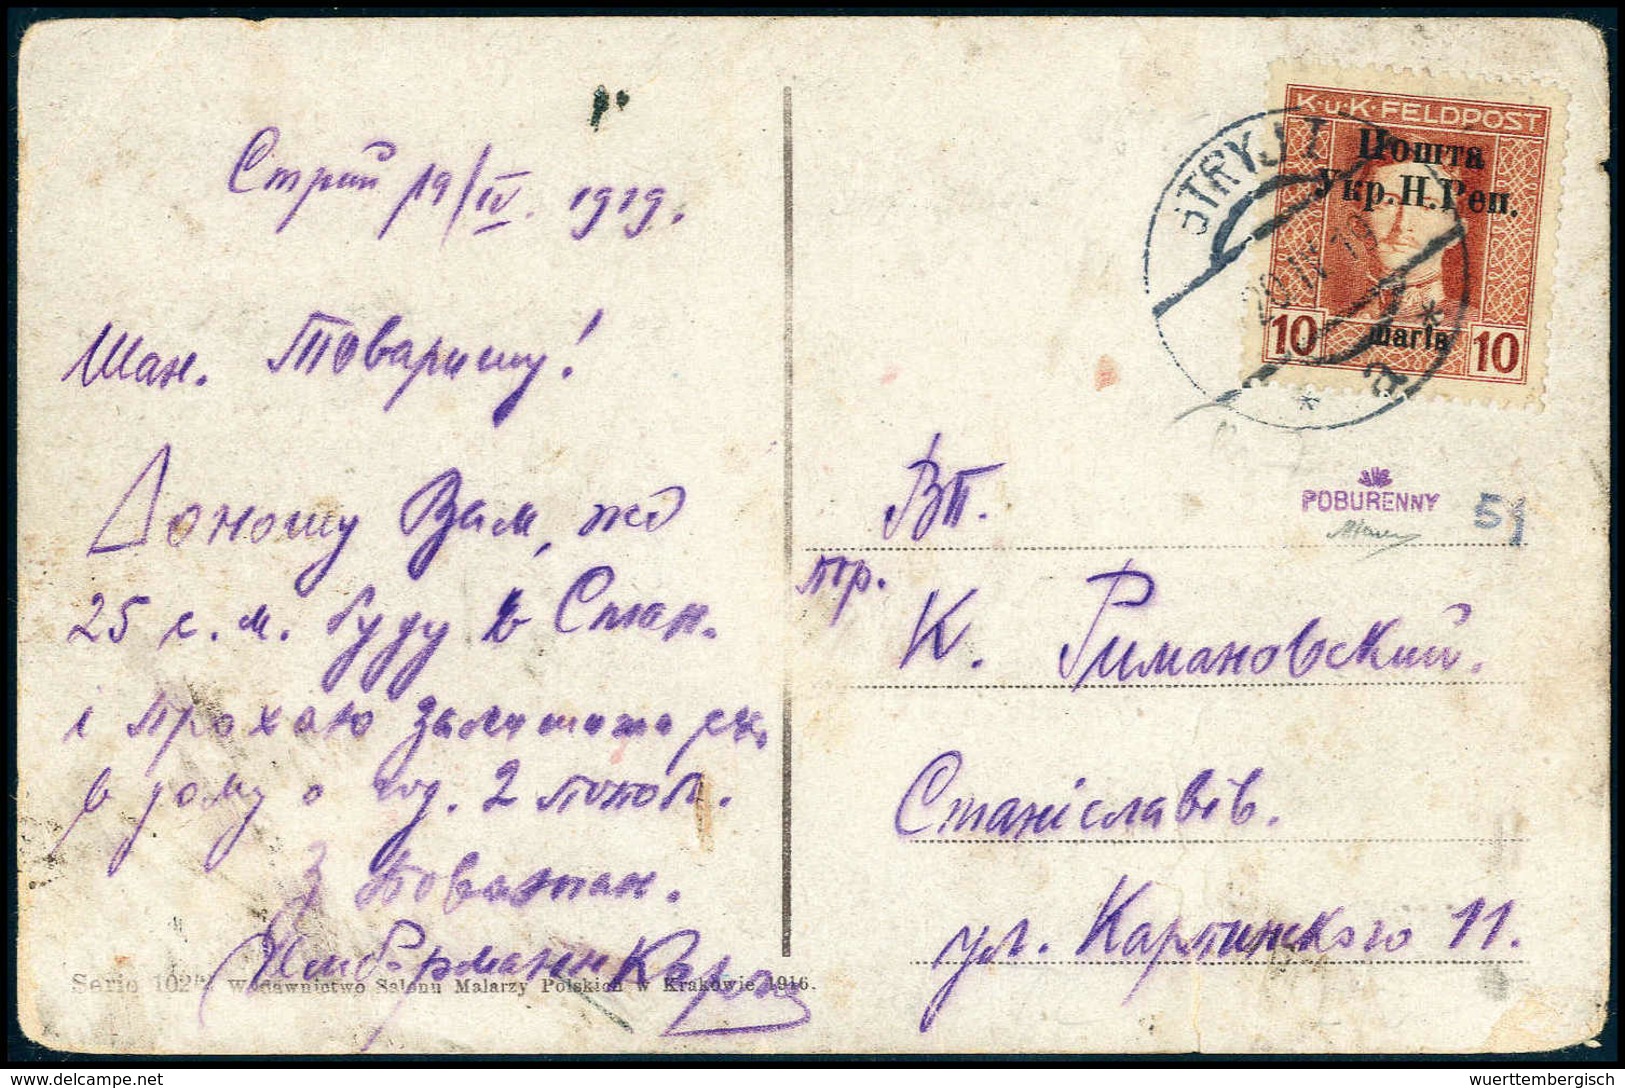 Стрий 19/IV. 1919.
Шан. Товаришу!
Доношу Вам, що
25 с. м. буду в Стан.
і прохаю залишити ся
в дому о год. 2 попол.
З Поважан.
Карло
Serie 102 Wydawnictwo Salonu Malarzy Polskich w Krakowie 1916.
K.u.K. FELDPOST
Пошта
Укр.Н.Реп.
шагів
10 10
STRYJ 1
20 IV 19
* a *
POBURENNY
51
ВП.
тр.
К. Римановский.
Станіславів.
ул. Карпинского 11.
wuerttembergisch